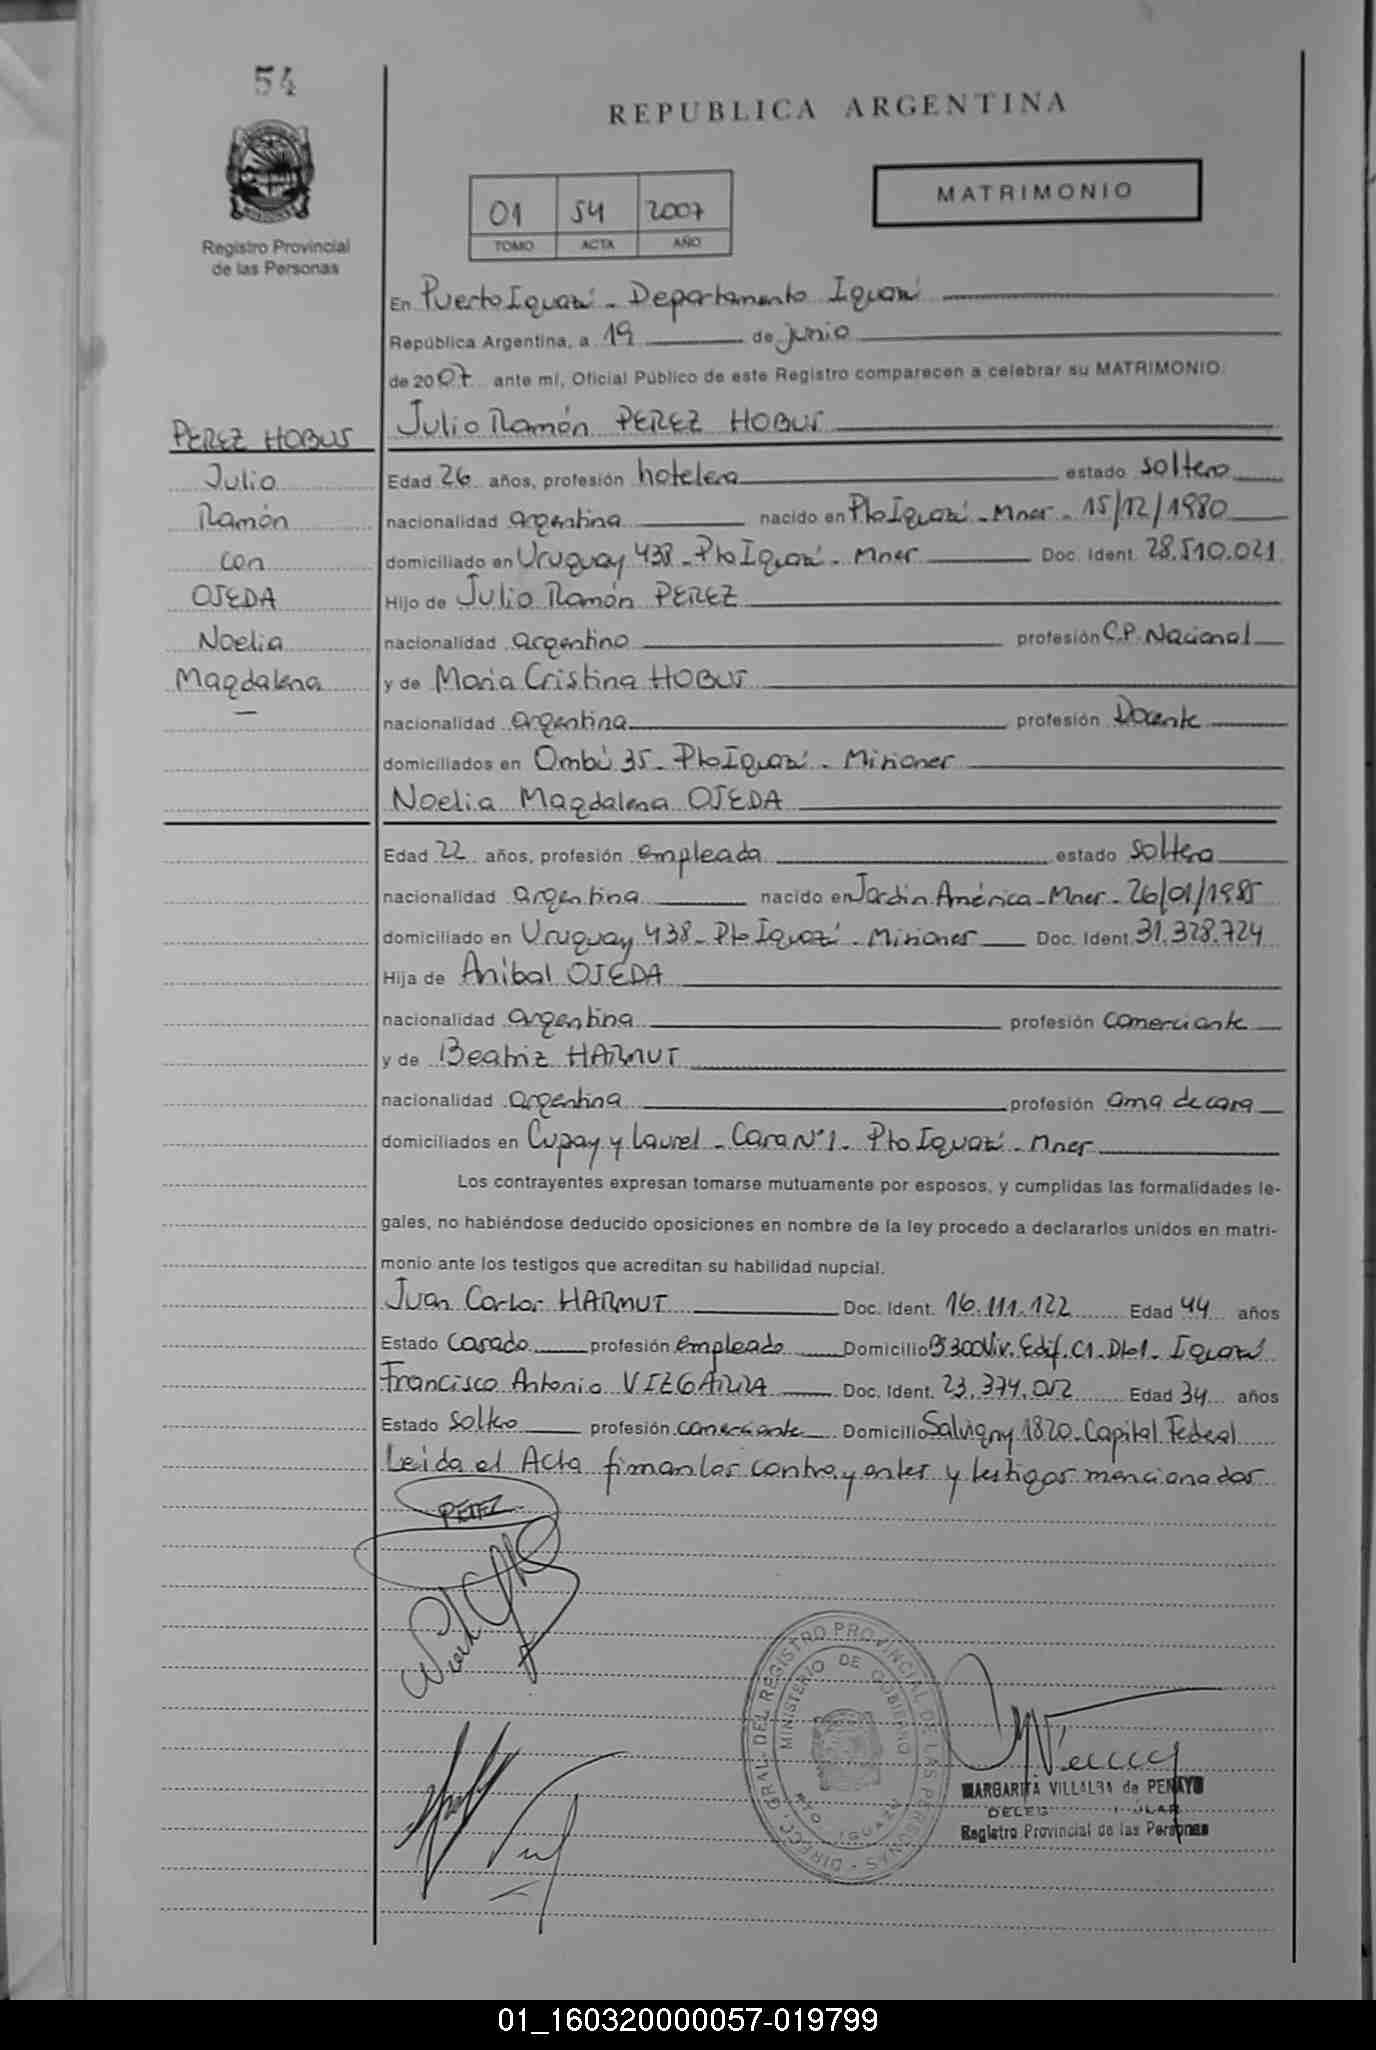 54
REPUBLICA ARGENTINA
MATRIMONIO
01 54 2007
TOMO ACTA AÑO
Registro Provincial
de las Personas
En Puerto Iguazú - Departamento Iguazú
República Argentina, a 19 de junio
de 2007 ante mí, Oficial Público de este Registro comparecen a celebrar su MATRIMONIO:
PEREZ HOBUS
Julio
Ramón
con
OJEDA
Noelia
Magdalena
Julio Ramón PEREZ HOBUS
Edad 26 años, profesión hotelero estado soltero
nacionalidad argentina nacido en Pto Iguazú - Mnes - 15/12/1980
domiciliado en Uruguay 438 - Pto Iguazú - Mnes Doc. Ident. 28.510.021
Hijo de Julio Ramón PEREZ
nacionalidad argentino profesión C.P. Nacional
y de Maria Cristina HOBUS
nacionalidad argentina profesión Docente
domiciliados en Ombú 35 - Pto Iguazú - Misiones
Noelia Magdalena OJEDA
Edad 22 años, profesión empleada estado soltera
nacionalidad argentina nacido en Jardin América - Mnes - 26/01/1985
domiciliado en Uruguay 438 - Pto Iguazú - Misiones Doc. Ident. 31.328.724
Hija de Anibal OJEDA
nacionalidad argentina profesión comerciante
y de Beatriz HARMUT
nacionalidad argentina profesión ama de casa
domiciliados en Cupay y Laurel - Casa N°1 - Pto Iguazú - Mnes
Los contrayentes expresan tomarse mutuamente por esposos, y cumplidas las formalidades le-
gales, no habiéndose deducido oposiciones en nombre de la ley procedo a declararlos unidos en matri-
monio ante los testigos que acreditan su habilidad nupcial.
Juan Carlos HARMUT Doc. Ident. 16.111.122 Edad 44 años
Estado Casado profesión empleado Domicilio Bº 300 Viv. Edif. C1 - Dto1 - Iguazú
Francisco Antonio VIEGARRA Doc. Ident. 23.374.012 Edad 34 años
Estado soltero profesión comerciante Domicilio Salvigny 1820 - Capital Federal
Leida el Acta firman los contrayentes y testigos mencionados
PEREZ
DIRECC. GRAL. DEL REGISTRO PROVINCIAL DE LAS PERSONAS
MINISTERIO DE GOBIERNO
PTO. IGUAZU
MARGARITA VILLALBA de PENAYO
Registro Provincial de las Personas
01_160320000057-019799